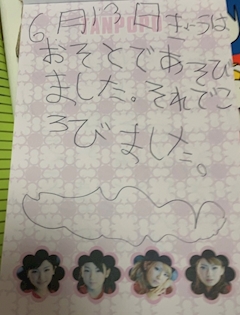 6月13日 きょうは、
おそとであそび
ました。それでこ
ろびました。